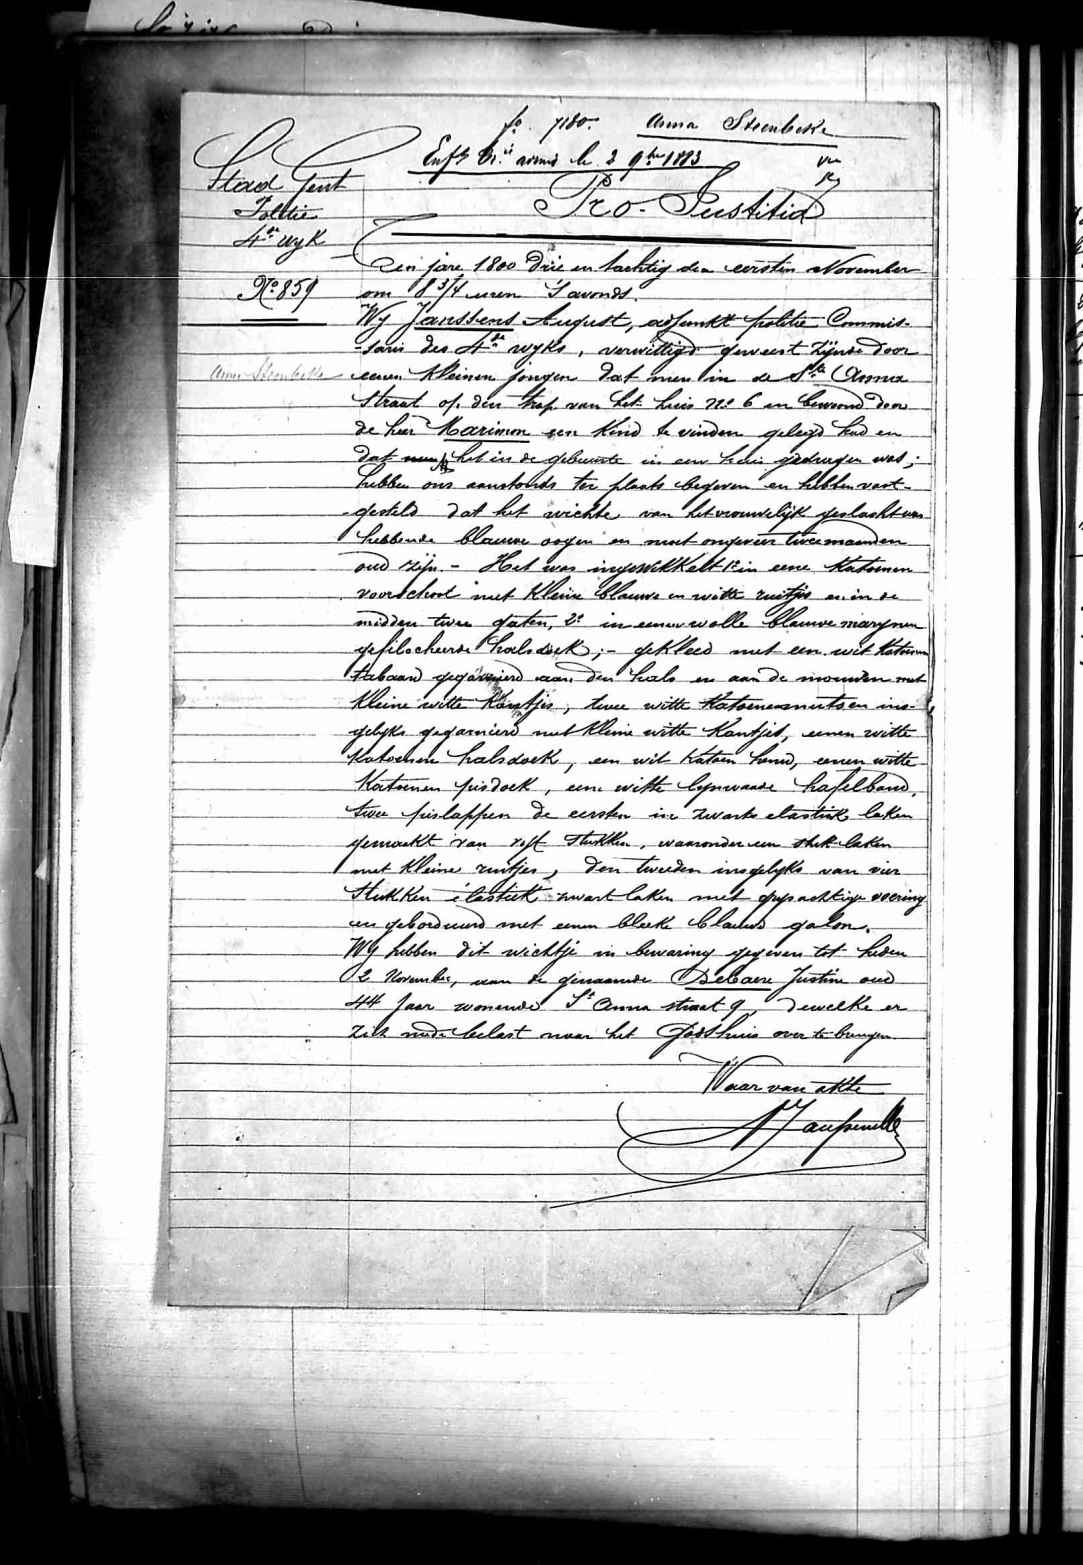 fo. 7180. Anna Steenbeke
Enft tr.é admis le 2 9bre 1883
Stad Gent
Politie
4de wyk
No 859
Anna Steenbeke
Pro-Justitia
Ten jare 1800 drie en tachtig den eersten November
om 8 3/4 uren 's avonds.
Wy Janssens August, adjunkt politie Commis-
-saris des 4de wyks, verwittigd geweest zijnde door
eenen kleinen jongen dat men in de Ste Anna
straat op den trap van het huis no 6 en bewoond door
de heer Marimon een kind te vinden gelegd had en
dat het in de gebuurte in een huis gedragen was;
hebben ons aanstonds ter plaats begeven en hebben vast-
-gesteld dat het wichte van het vrouwelijk geslacht was
hebbende blauwe oogen en moet ongeveer twee maanden
oud zijn. - Het was ingewikkelt 1o in eene katoenen
voorschoot met kleine blauwe en witte ruitjes en in de
midden twee gaten, 2o in eenen wolle blauwe marynen
gefilocheerde halsdoek; - gekleed met een wit katoenen
tabaard gegarnierd aan den hals en aan de mouwen met
kleine witte kantjes, twee witte katoenemutsen ins-
gelyks gegarnierd met kleine witte kantjes, eenen witte
katoenen halsdoek, een wit katoen hemd, eenen witte
katoenen pisdoek, eene witte lynwaade hafelband,
twee pislappen de eersten in zwarte elastiek laken
gemaakt van vyf stukken, waaronder een stuk laken
met kleine ruitjes, den tweeden insgelyks van vier
stukken élastiek zwart laken met grysachtige voering
en geborduurd met eenen bleeke blauwe galon.
Wy hebben dit wichtje in bewaring gegeven tot heden
2 November, aan de genaamde Debaere Justine oud
44 jaar wonende St Anna straat 9, dewelke er
zich mede belast naar het Godshuis over te brengen.
Waar van akte